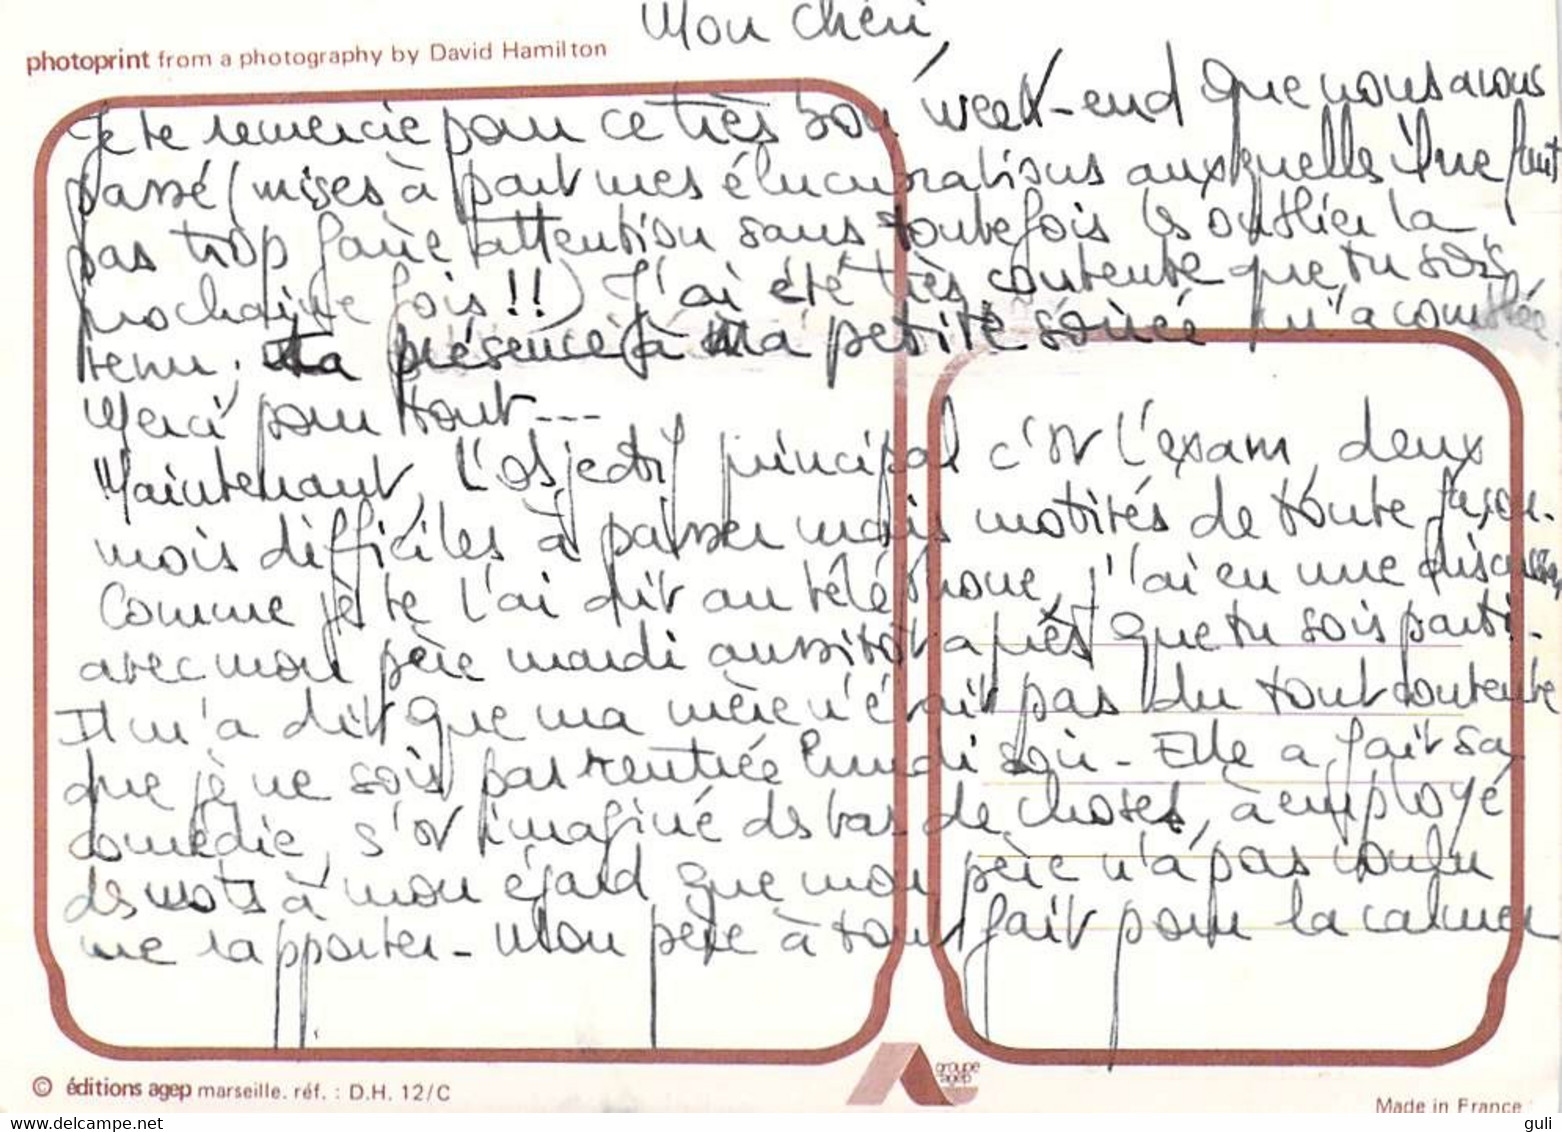 Mon chéri,
photoprint from a photography by David Hamilton
Je te remercie pour ce très bon week-end que nous avons
passé (mises à part mes élucubrations auxquelles il ne faut
pas trop faire attention sans toutefois les oublier la
prochaine fois !!) J'ai été très contente que tu sois
venu ; ta présence à ma petite soirée m'a comblée.
Merci pour tout ---
Maintenant, l'objectif principal c'est l'exam, deux
mois difficiles à passer mais motivés de toute façon.
Comme je te l'ai dit au téléphone, j'ai eu une discussion
avec mon père mardi aussitôt après que tu sois parti.
Il m'a dit que ma mère n'était pas du tout contente
que je ne sois pas rentrée lundi soir - Elle a fait sa
comédie, s'est imaginé des tas de choses, à employé
des mots à mon égard que mon père n'a pas voulu
me rapporter - Mon père à tout fait pour la calmer
groupe agep
© éditions agep marseille. réf. : D.H. 12/C
Made in France
delcampe.net
guli